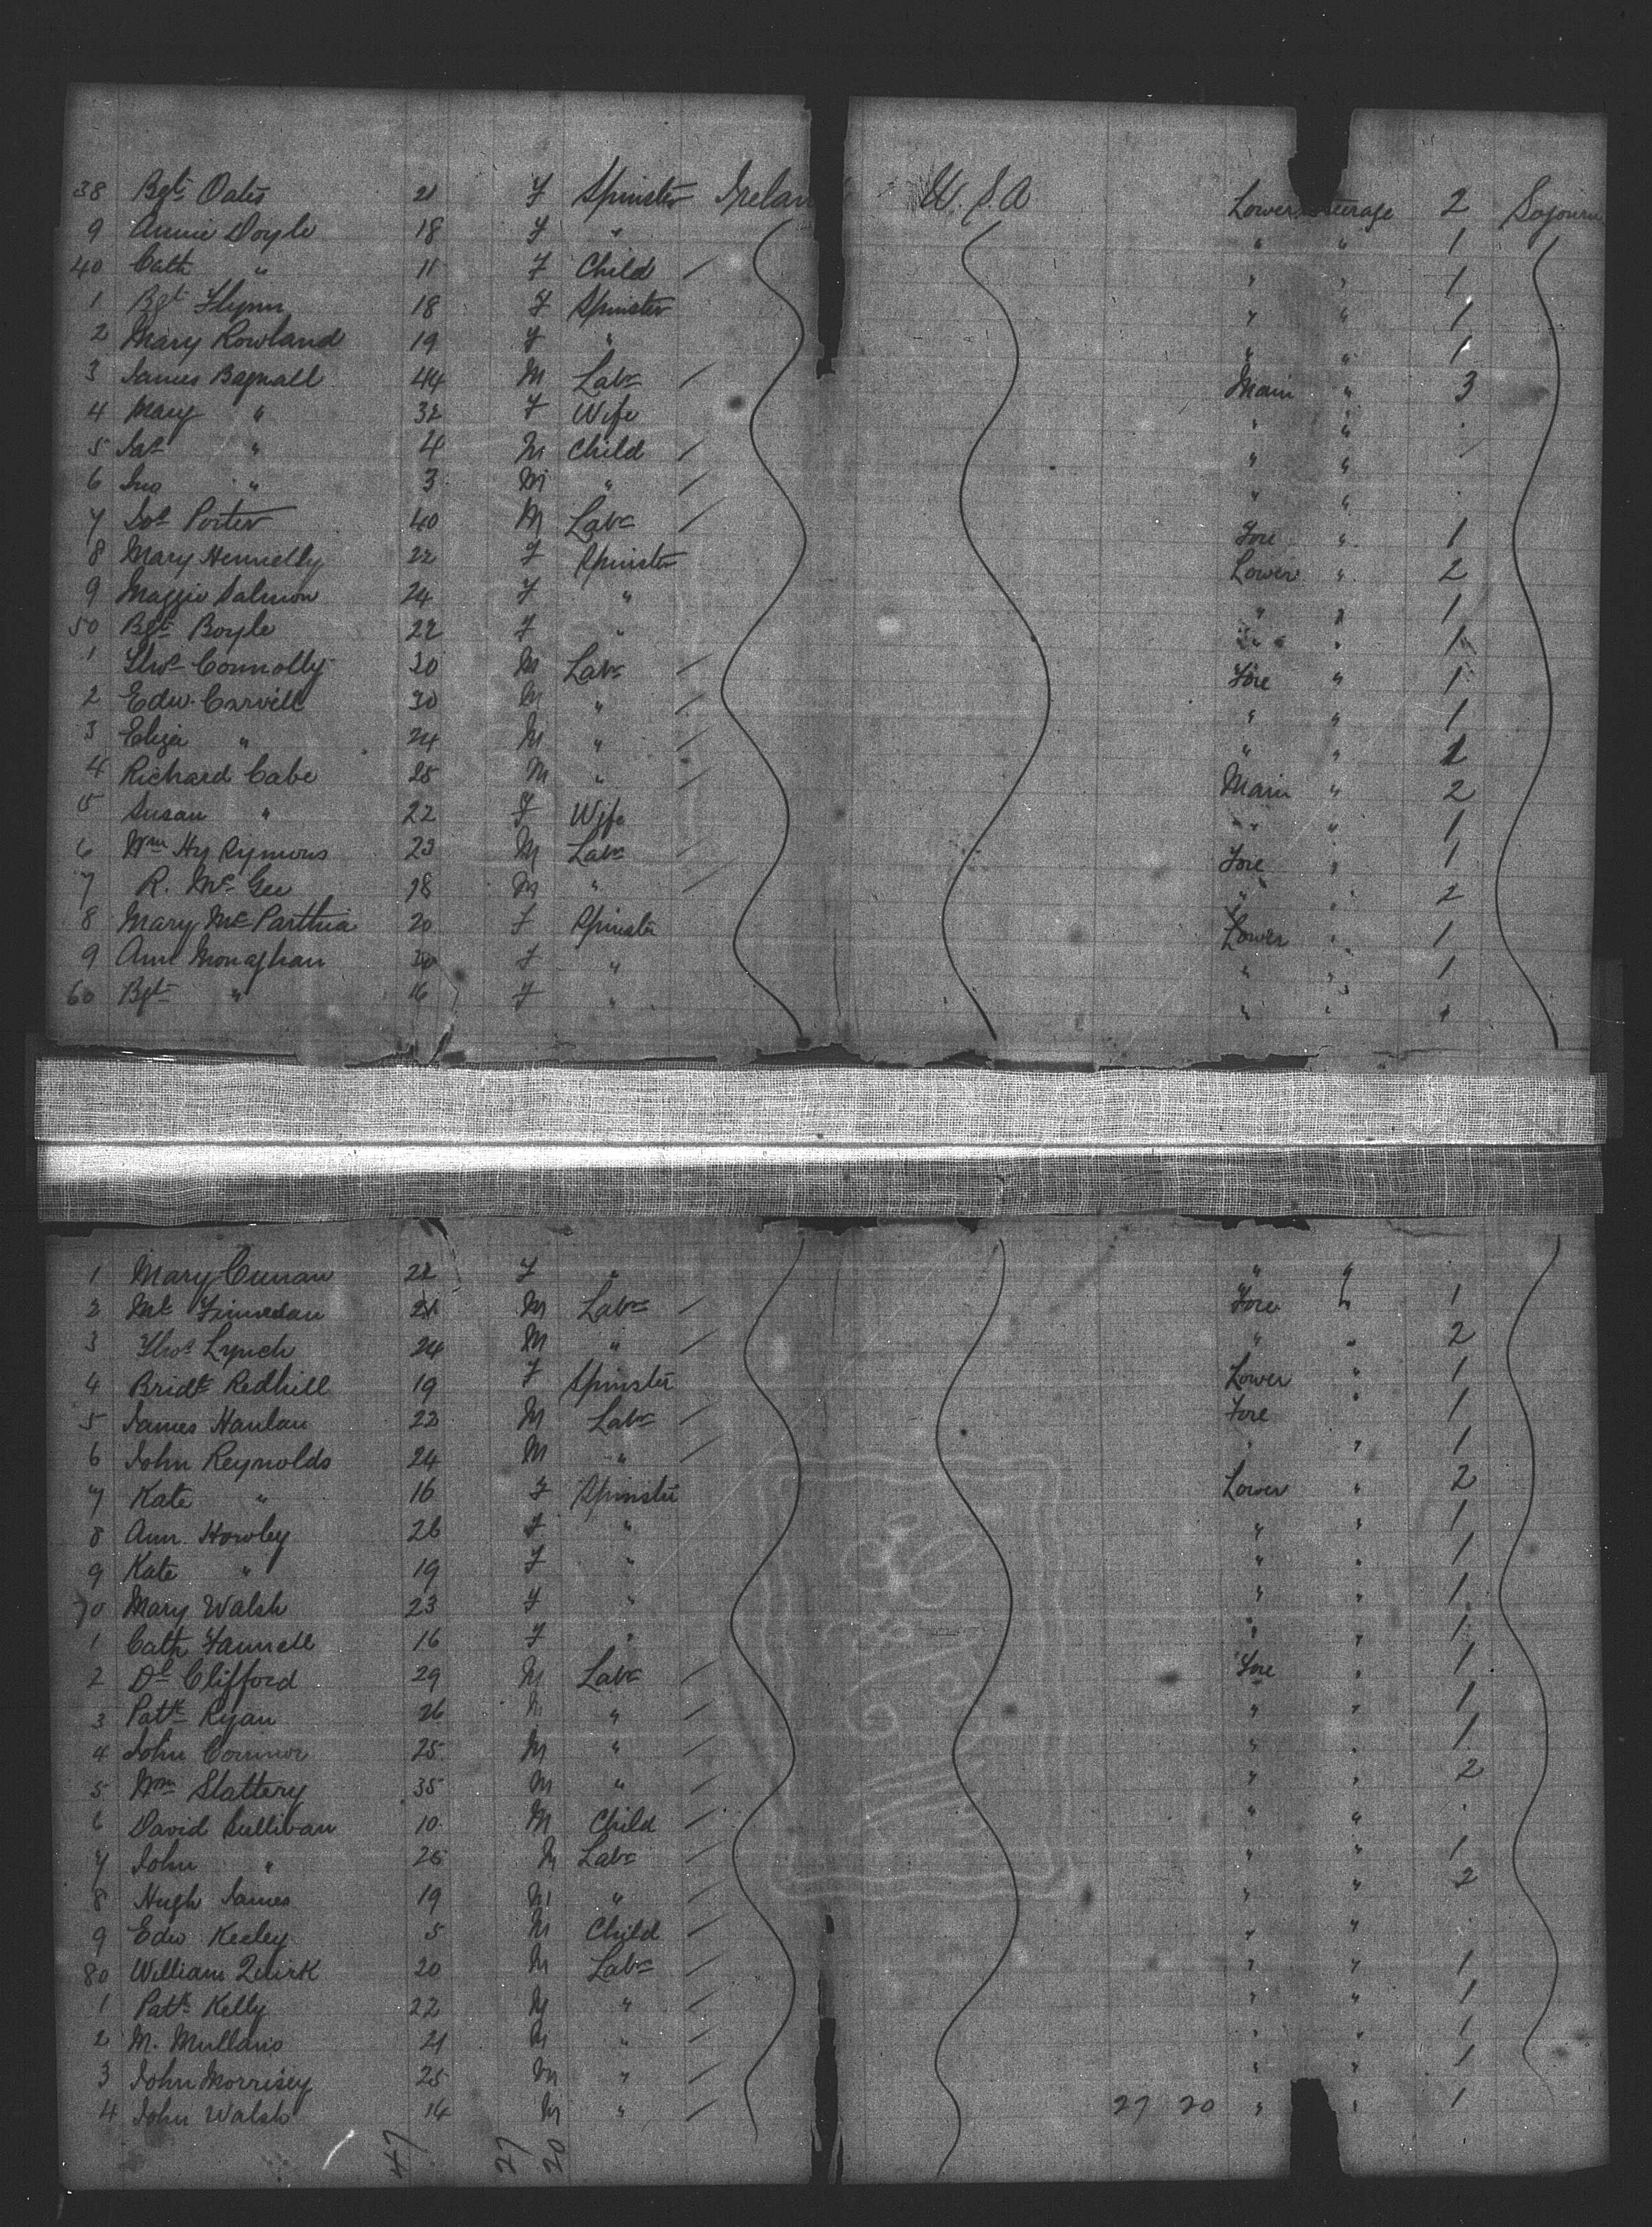 38 Bgt Oates 21 F Spinster Ireland U.S.A Lower Steerage 2 Sojourn
9 Annie Doyle 18 F " " " 1
40 Cath " 11 F Child / " " 1
1 Bgt Flynn 18 F Spinster " " 1
2 Mary Rowland 19 F " " " 1
3 James Bagnall 44 M Labr / Main " 3
4 Mary " 32 F Wife " "
5 Jas " 4 M Child / " "
6 Jno " 3 M " / " "
7 Jos Porter 40 M Labr / Fore " 1
8 Mary Hennelly 22 F Spinster Lower " 2
9 Maggie Salmon 24 F " " " 1
50 Bgt Boyle 22 F " " " 1
1 Thos Connolly 20 M Labr / Fore " 1
2 Edw. Carvill 30 M " / " " 1
3 Eliza " 24 M " / " " 1
4 Richard Cabe 25 M " / Main " 2
5 Susan " 22 F Wife " " 1
6 Wm Hy Rymons 23 M Labr / Fore " 1
7 R. Mc Gee 18 M " / " " 2
8 Mary Mc Parthia 20 F Spinster Lower " 1
9 Ann Monaghan 20 F " " " 1
60 Bgt " 16 F " " "
1 Mary Curran 22 F " " "
2 Mt Finnedan 21 M Labr / Fore " 1
3 Thos Lynch 24 M " / " " 2
4 Bridt Redhill 19 F Spinster Lower " 1
5 James Hanlan 22 M Labr / Fore " 1
6 John Reynolds 24 M " / " " 1
7 Kate " 16 F Spinster Lower " 2
8 Ann Howley 26 F " " " 1
9 Kate " 19 F " " " 1
70 Mary Walsh 23 F " " " 1
1 Cath Fannell 16 F " " " 1
2 Dl Clifford 29 M Labr / Fore " 1
3 Patk Ryan 26 M " / " " 1
4 John Connor 25 M " / " " 1
5 Wm Slattery 35 M " / " " 2
6 David Sullivan 10 M Child / " "
7 John " 25 M Labr / " " 1
8 Hugh James 19 M " / " " 2
9 Edw Keeley 5 M Child / " "
80 William Quirk 20 M Labr / " " 1
1 Patk Kelly 22 M " / " " 1
2 M. Mulldris 21 M " / " " 1
3 John Morrisey 25 M " / " " 1
4 John Walsh 14 M " / 27 20 " " 1
47 27 20